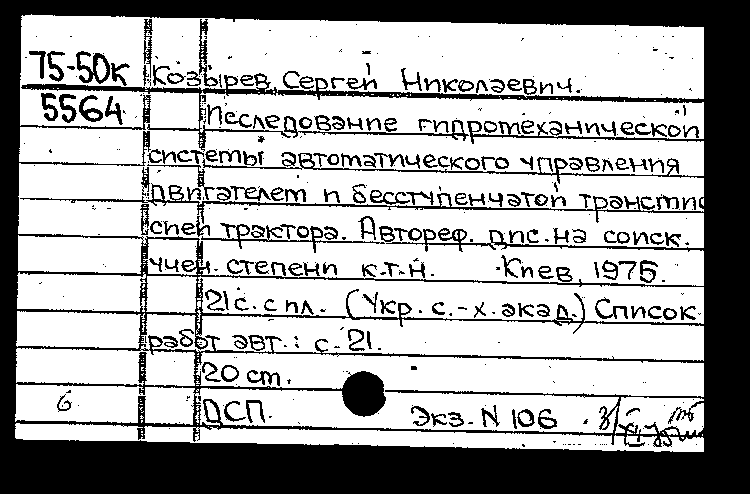 75-50к Козырев, Сергей Николаевич.
5564 Исследование гидромеханической
системы автоматического управления
двигателем и бесступенчатой трансмис
сией трактора. Автореф. дис. на соиск.
учен. степени к.т.н. Киев, 1975.
21с. с ил. (Укр. с.-х. акад.) Список
работ авт.: с. 21.
20 cm.
6 ДСП. Экз. N 106